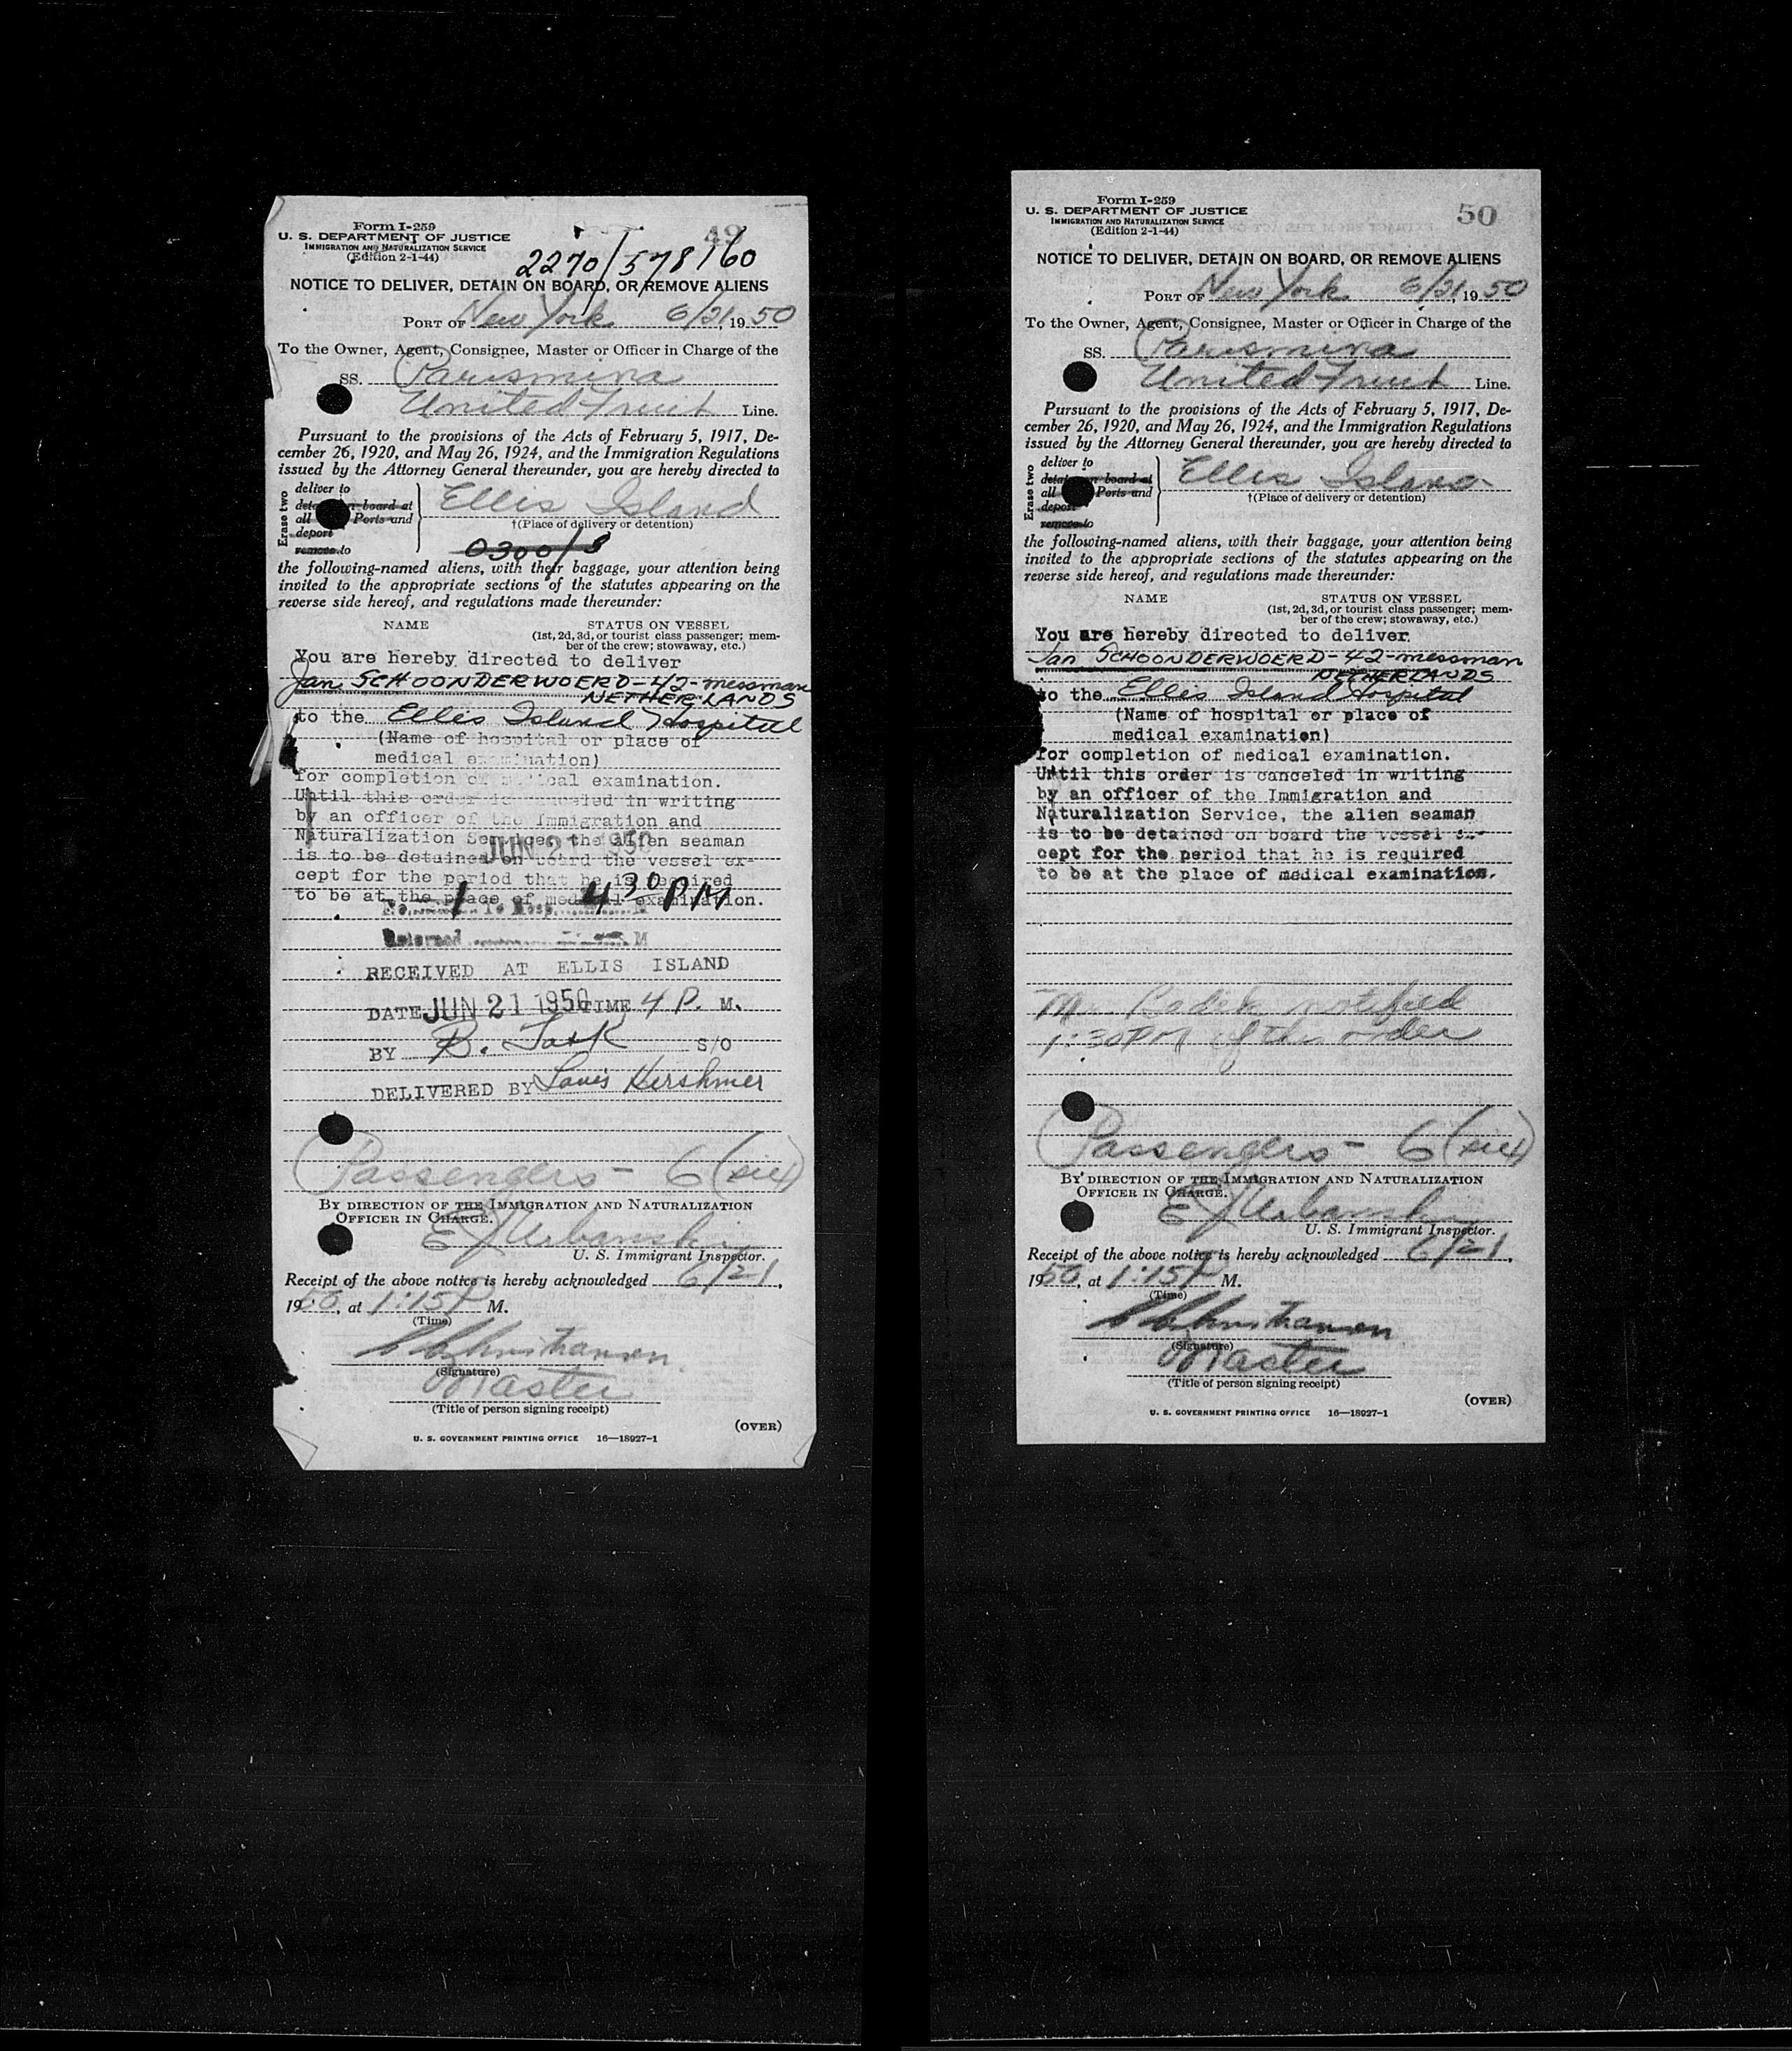 Form I-259
U. S. DEPARTMENT OF JUSTICE
IMMIGRATION AND NATURALIZATION SERVICE
(Edition 2-1-44)
49
2270/578/60
NOTICE TO DELIVER, DETAIN ON BOARD, OR REMOVE ALIENS
PORT OF New York 6/21, 1950
To the Owner, Agent, Consignee, Master or Officer in Charge of the
SS. Parismina
United Fruit Line.
Pursuant to the provisions of the Acts of February 5, 1917, De-
cember 26, 1920, and May 26, 1924, and the Immigration Regulations
issued by the Attorney General thereunder, you are hereby directed to
Erase two
deliver to
detain on board at
all Ports and
deport
remove to
Ellis Island
†(Place of delivery or detention)
0300/3
the following-named aliens, with their baggage, your attention being
invited to the appropriate sections of the statutes appearing on the
reverse side hereof, and regulations made thereunder:
NAME STATUS ON VESSEL
(1st, 2d, 3d, or tourist class passenger; mem-
ber of the crew; stowaway, etc.)
You are hereby directed to deliver
Jan SCHOONDERWOERD-42-messman
NETHERLANDS
to the Ellis Island Hospital
(Name of hospital or place of
medical examination)
for completion of medical examination.
Until this order is canceled in writing
by an officer of the Immigration and
Naturalization Service, the alien seaman
JUN 21 1950
is to be detained on board the vessel ex-
cept for the period that he is required
to be at the place of medical examination.
1 To Hosp. 4 30 PM
Returned M
RECEIVED AT ELLIS ISLAND
DATE JUN 21 1950 TIME 4 P. M.
BY B. Task S/O
DELIVERED BY Louis Hershmer
Passengers - 6 (six)
BY DIRECTION OF THE IMMIGRATION AND NATURALIZATION
OFFICER IN CHARGE.
E J Urbanski
U. S. Immigrant Inspector.
Receipt of the above notice is hereby acknowledged 6/21,
1950, at 1:15 P M.
(Time)
(Signature)
Master
(Title of person signing receipt)
(OVER)
U. S. GOVERNMENT PRINTING OFFICE 16—18927-1
Form I-259
U. S. DEPARTMENT OF JUSTICE
IMMIGRATION AND NATURALIZATION SERVICE
(Edition 2-1-44)
50
NOTICE TO DELIVER, DETAIN ON BOARD, OR REMOVE ALIENS
PORT OF New York 6/21, 1950
To the Owner, Agent, Consignee, Master or Officer in Charge of the
SS. Parismina
United Fruit Line.
Pursuant to the provisions of the Acts of February 5, 1917, De-
cember 26, 1920, and May 26, 1924, and the Immigration Regulations
issued by the Attorney General thereunder, you are hereby directed to
Erase two
deliver to
detain on board at
all Ports and
deport
remove to
Ellis Island
†(Place of delivery or detention)
the following-named aliens, with their baggage, your attention being
invited to the appropriate sections of the statutes appearing on the
reverse side hereof, and regulations made thereunder:
NAME STATUS ON VESSEL
(1st, 2d, 3d, or tourist class passenger; mem-
ber of the crew; stowaway, etc.)
You are hereby directed to deliver
Jan SCHOONDERWOERD-42-messman
NETHERLANDS
to the Ellis Island Hospital
(Name of hospital or place of
medical examination)
for completion of medical examination.
Until this order is canceled in writing
by an officer of the Immigration and
Naturalization Service, the alien seaman
is to be detained on board the vessel ex-
cept for the period that he is required
to be at the place of medical examination.
Mr. notified
1:30PM of this order
Passengers - 6 (six)
BY DIRECTION OF THE IMMIGRATION AND NATURALIZATION
OFFICER IN CHARGE.
E J Urbanski
U. S. Immigrant Inspector.
Receipt of the above notice is hereby acknowledged 6/21,
1950, at 1:15 P M.
(Time)
(Signature)
Master
(Title of person signing receipt)
(OVER)
U. S. GOVERNMENT PRINTING OFFICE 16—18927-1